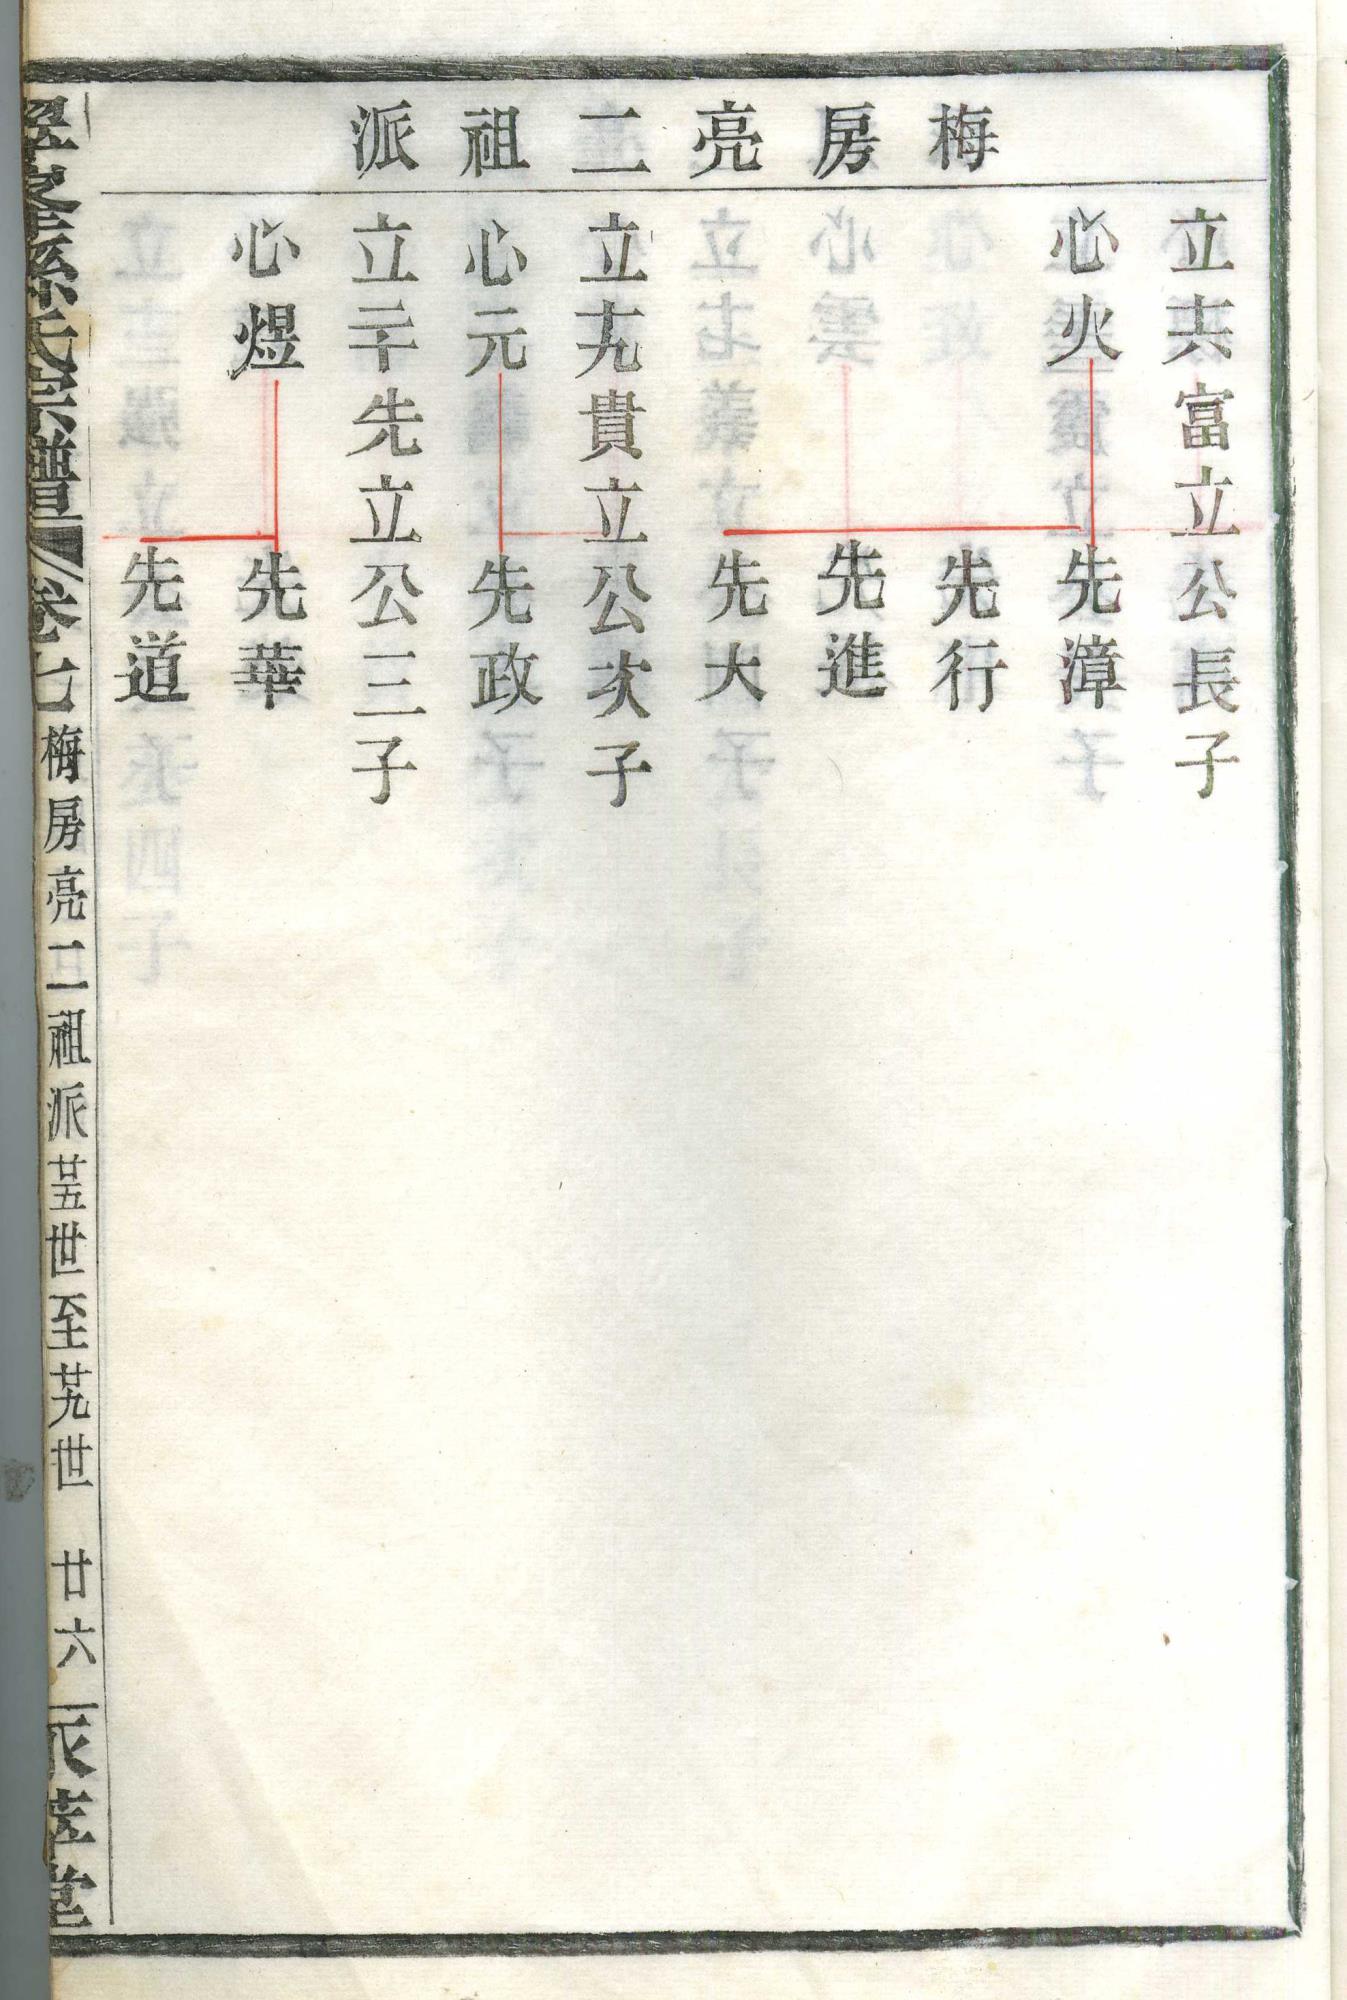 梅房亮二祖派
立六富立公長子
心火
先漳
先行
先進
先大
立九貴立公次子
心元
先政
立二十先立公三子
心煜
先華
先道
氏宗譜
卷七
梅房亮二祖派 廿五世至廿九世 廿六
堂